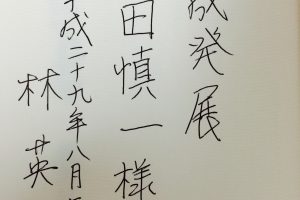 成発展
田慎一様
平成二十九年八月
林英